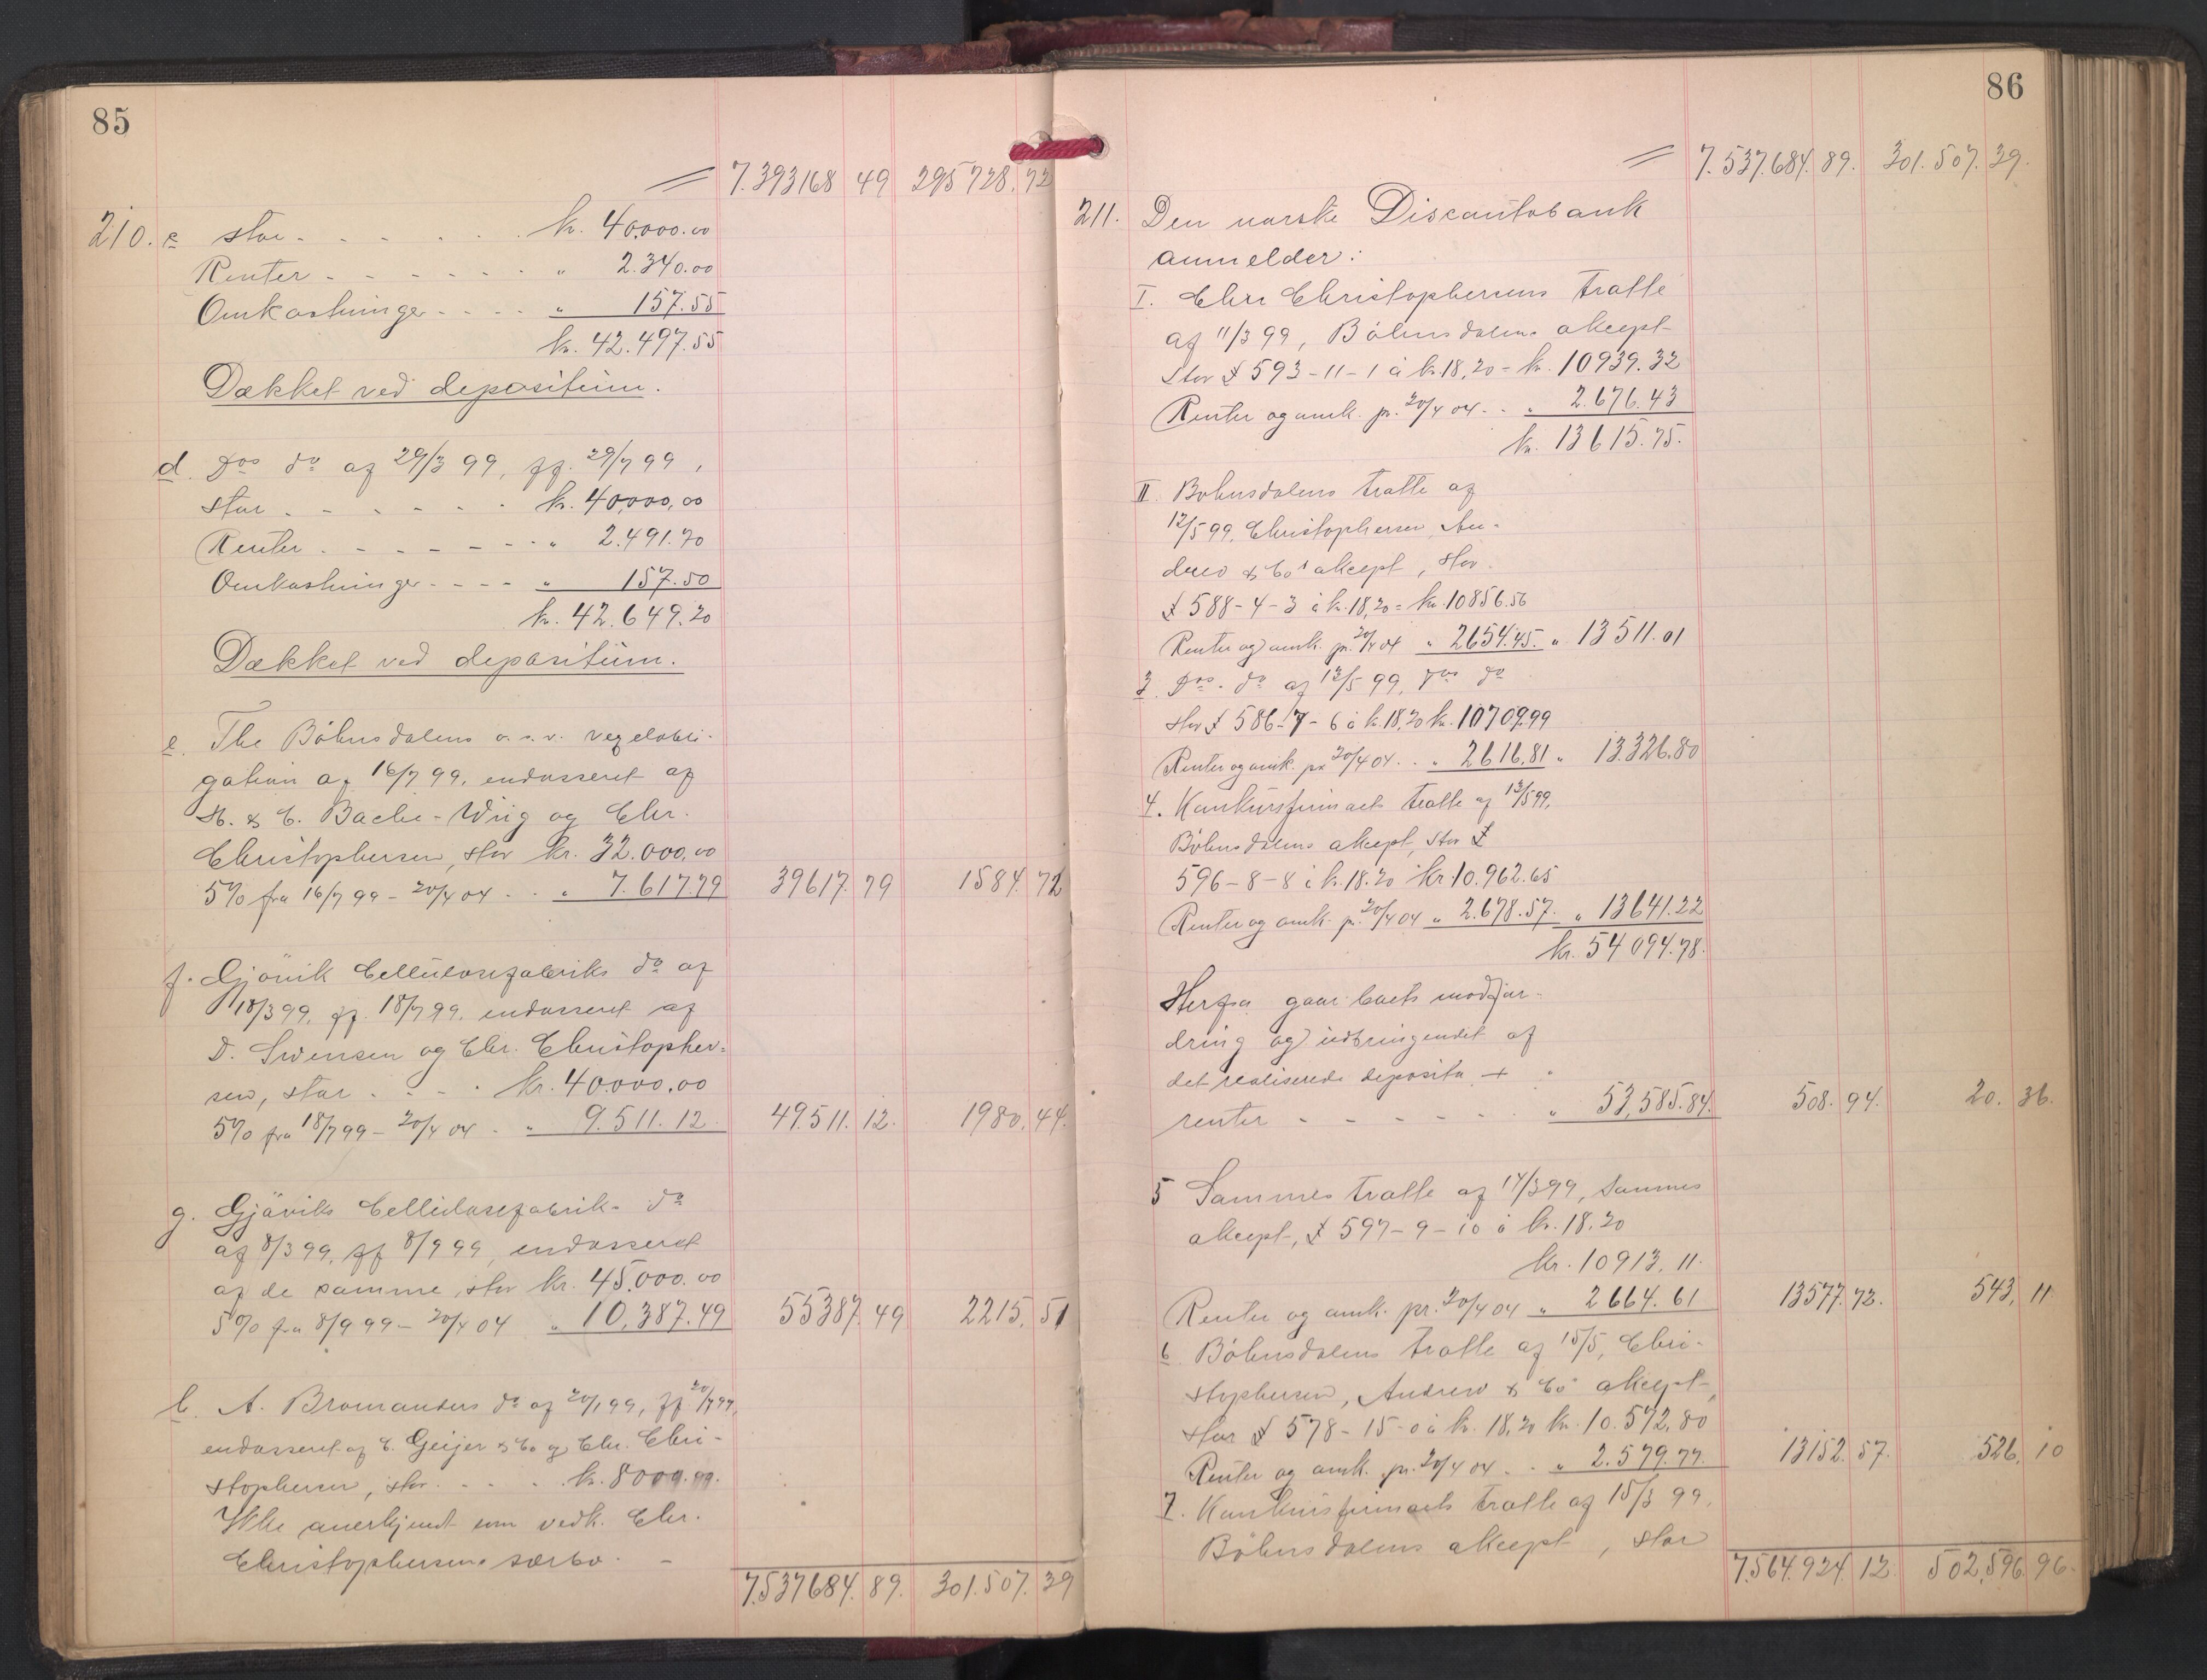 85
7.393168 49 295728.72
210. c stor - - - - - kr. 40,000.00
Renter - - - - - - " 2.340.00
Omkostninger - - - - " 157.55
kr. 42.497.55
Dækket ved depositum.
d. Dos do af 29/3 99, ff. 29/7 99,
stor - - - - - - kr. 40,000,00
Renter - - - - - - " 2.491.70
Omkostninger - - - - " 157.50
kr. 42.649.20
Dækket ved depositum.
e. The Böhnsdalens o.s.v. vexelobli-
gation af 16/7 99, endosseret af
H. & C. Bache-Wiig og Chr.
Christophersen, stor kr. 32.000,00
5% fra 16/7 99 - 20/4 04 - - " 7.617.79 39617.79 1584.72
f. Gjövik Cellulosefabriks do af
18/3 99, ff. 18/7 99, endosseret af
D. Svensen og Chr. Christopher-
sen, stor - - - kr. 40000.00
5% fra 18/7 99 - 20/4 04 - " 9.511.12. 49.511.12. 1980.44.
g. Gjöviks Cellulosefabrik- do
af 8/3 99, ff 8/9 99, endosseret
af de samme, stor kr. 45.000.00
5% fra 8/9 99 - 20/4 04 " 10,387.49 55387.49 2215,51
h. A. Bromanders do af 20/1 99, ff. 20/7 99,
endosseret af C. Geijer & Co og Chr. Chri-
stophersen, stor - - - - kr. 8000.00.
Ikke anerkjendt som vedk. Chr.
Christophersens særbo. -
7.537684.89. 301.507.39
86
7.537.684.89. 301.507.39.
211. Den norske Discontobank
anmelder:
I. Chr Christophersens tratte
af 11/3 99, Böhnsdalens akcept
stor £ 593-11-1 à kr 18,20 = kr. 10939.32
Renter og omk. pr. 20/4 04 - - " 2.676.43
kr. 13615.75.
II. Bohnsdalens tratte af
12/5 99, Christophersen, An-
drew & Co's akcept, stor
£ 588-4-3 à kr. 18,20 = kr. 10856.56
Renter og omk. pr. 20/4 04 " 2654.45. " 13511.01
3. Dos. do af 12/5 99, dos do
stor £ 586-7-6 à kr. 18,20 kr. 10709.99
Renter og omk. pr 20/4 04 - - " 2616,81 " 13.326.80
4. Konkursfirmaets tratte af 12/5 99,
Böhnsdalens akcept, stor £
596-8-8 à kr. 18.20 kr. 10.962.65
Renter og omk. pr. 20/4 04 " 2.678.57. " 13641.22
kr. 54094.78.
Herfra gaar boets modfor-
dring og udbringendet af
det realiserede deposita +
renter - - - - - " 53,585.84. 508.94. 20.36.
5 Sammes tratte af 14/3 99, sammes
akcept, £ 597-9-10 à kr. 18.20
kr. 10913.11.
Renter og omk. pr. 20/4 04 " 2664.61 13577.72. 543,11
6. Böhnsdalens tratte af 15/5, Chri-
stophersen, Andrew & Co's akcept,
stor £ 578-15-0 à kr. 18,20 kr. 10.572,80
Renter og omk. pr. 20/4 04 - - " 2.579.77. 13152.57. 526,10
7. Konkursfirmaets tratte af 15/3 99,
Böhnsdalens akcept, stor
7.564.924.12 502,596.96.